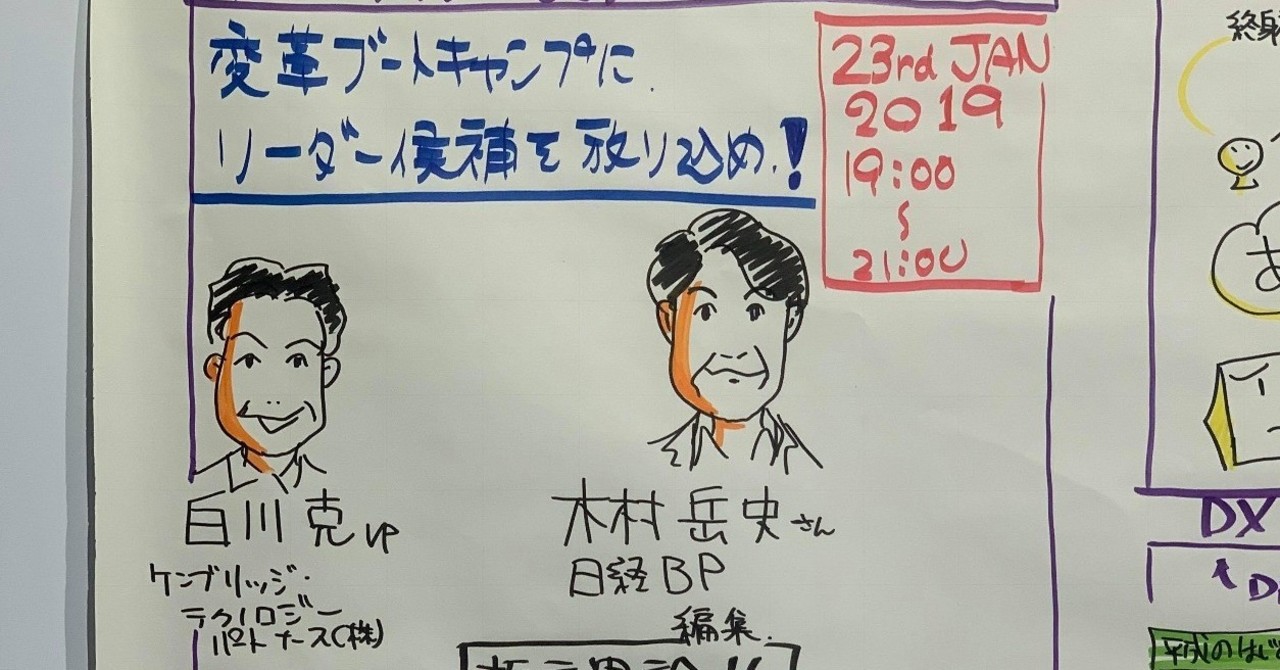 変革ブートキャンプに
リーダー候補を放り込め!
23rd JAN
2019
19:00
〜
21:00
白川 克 VP
ケンブリッジ・
テクノロジー
パートナーズ(株)
木村岳史さん
日経BP
編集.
あ
DX
平成のはじ